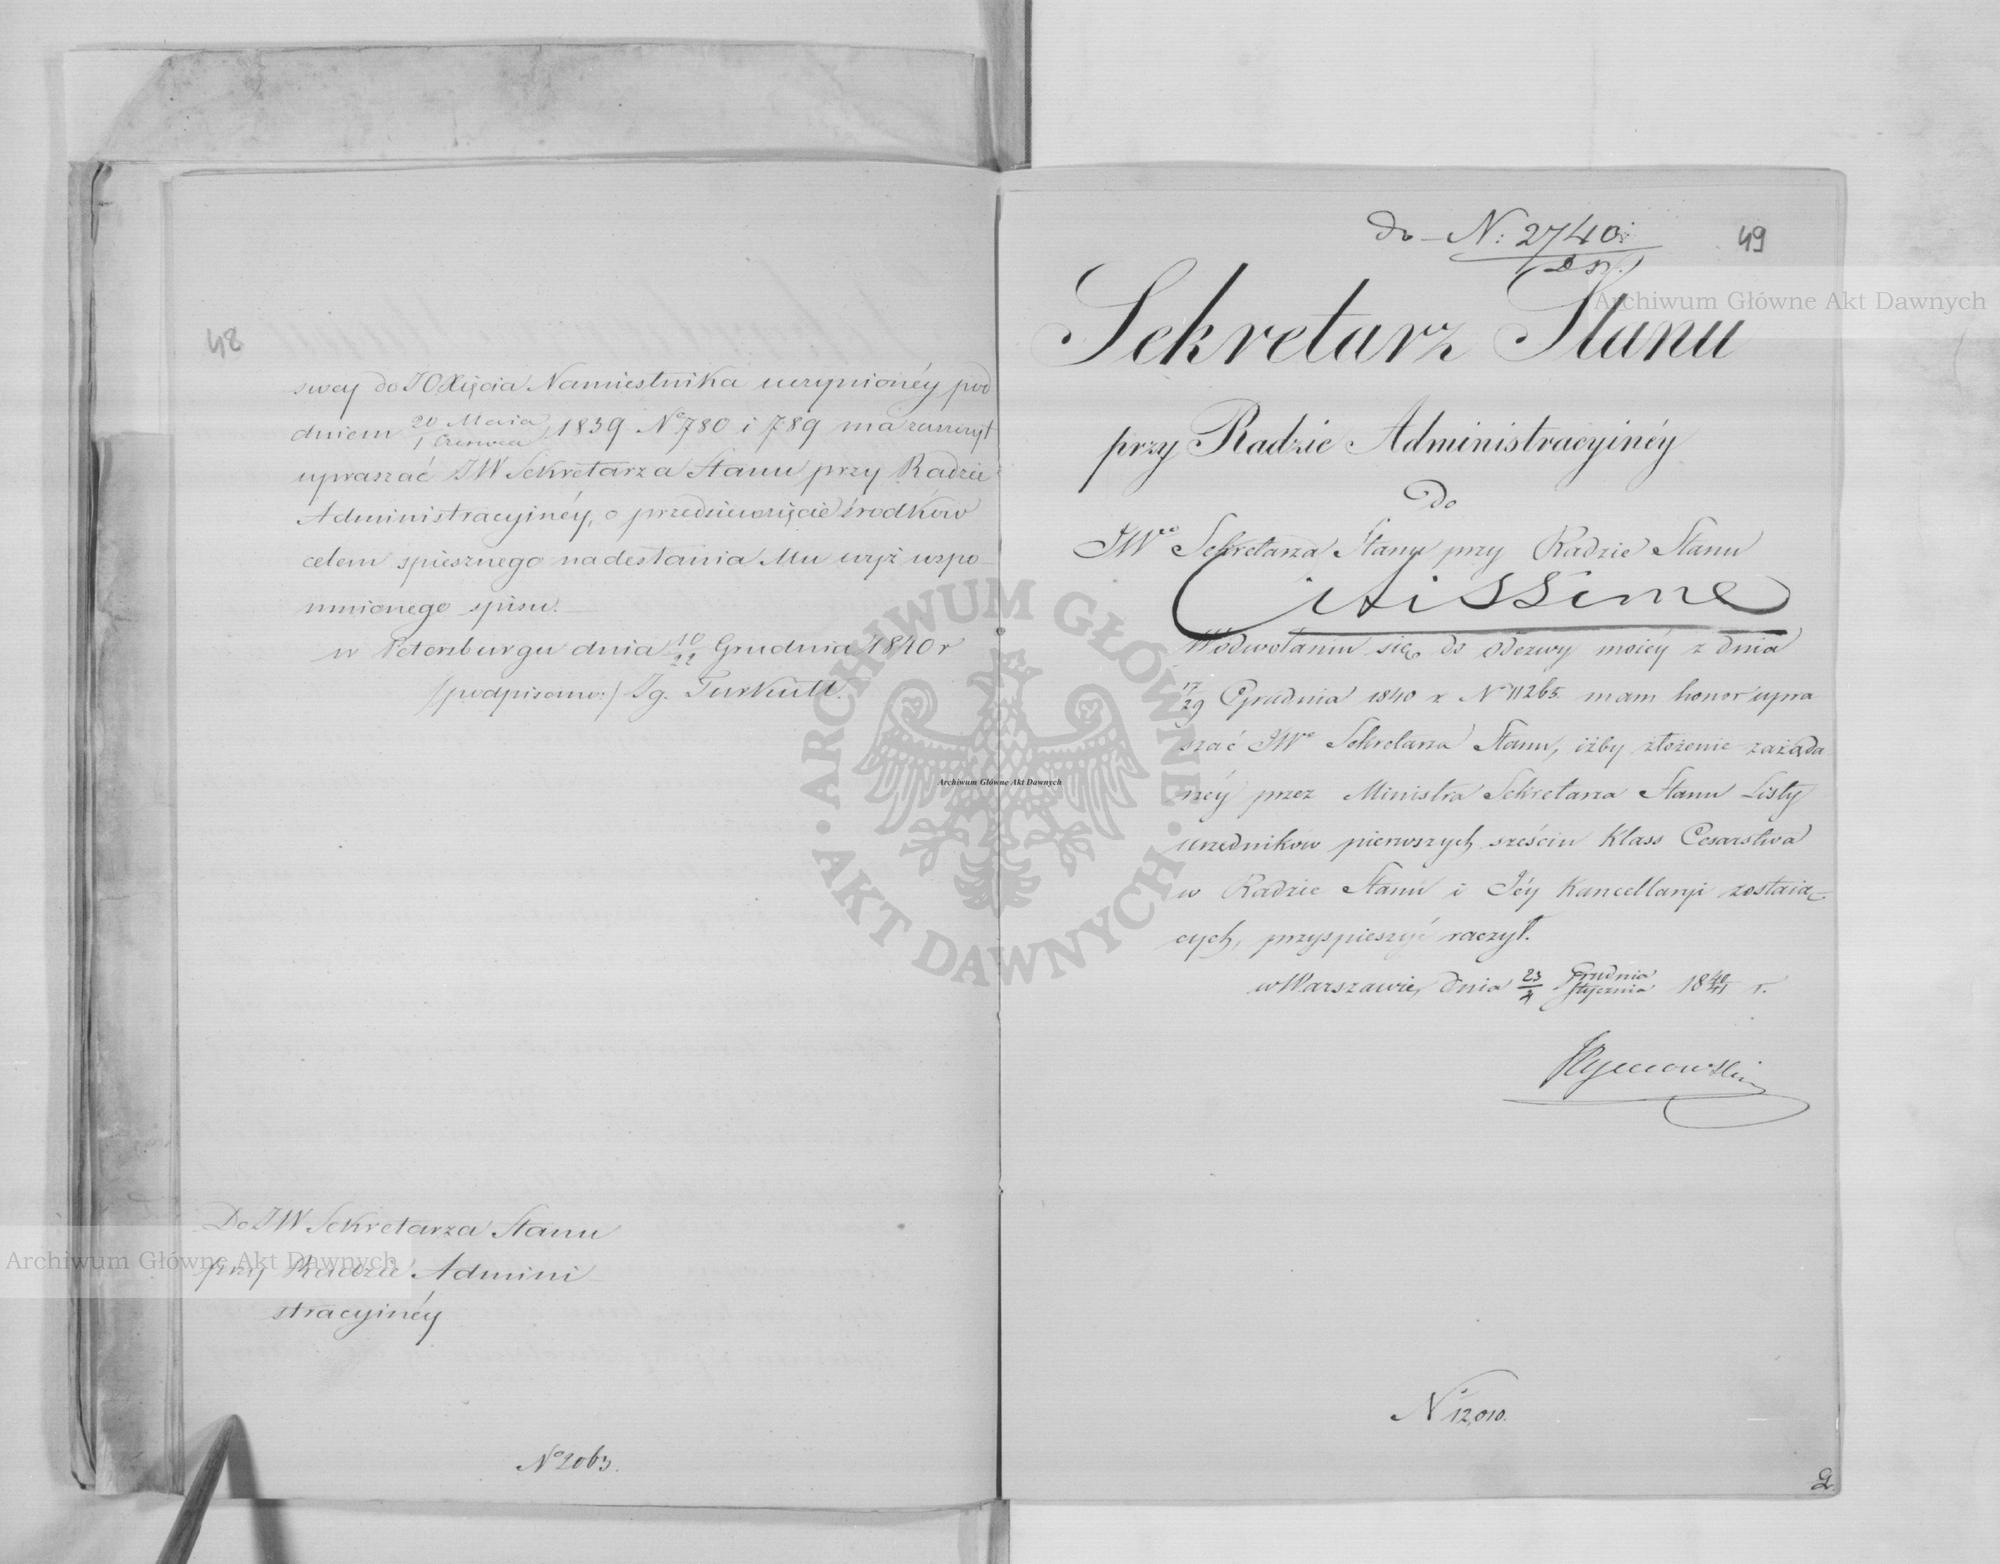 48
swey do JO Xięcia Namiestnika uczynionéy pod
dniem 20 Maia / 1 Czerwca 1839 Nº 780 i 789 ma zaszczyt
upraszać JW Sekretarza Stanu przy Radzie
Administracyjnéy, o przedsiewzięcie środków
celem spiesznego nadesłania Mu wyż wspo-
mnionego spisu.—
w Petersburgu dnia 10/22 Grudnia 1840 r
/podpisano:/ Ig. Turkułł.
Do JW Sekretarza Stanu
przy Radzie Admini
stracyjnéy
Nº 2063.
do N: 2740.
49
Sekretarz Stanu
przy Radzie Administracyinéy
Do
JWgo Sekretarza Stanu przy Radzie Stanu
Citissime
W odwołaniu się do odezwy moiéy z dnia
17/29 Grudnia 1840 r Nº 11265 mam honor upra
szać JWº Sekretarza Stanu, iżby złożenie zażąda
néy przez Ministra Sekretarza Stanu Listy
urzędników pierwszych sześciu Klass Cesarstwa
w Radzie Stanu i Jéy Kancellaryi zostaią-
cych, przyspieszyć raczył.
w Warszawie, dnia 23/4 Grudnia/Stycznia 1840/41 r.
Nº 12,010.
Archiwum Główne Akt Dawnych
Archiwum Główne Akt Dawnych
Archiwum Główne Akt Dawnych
ARCHIWUM GŁÓWNE AKT DAWNYCH